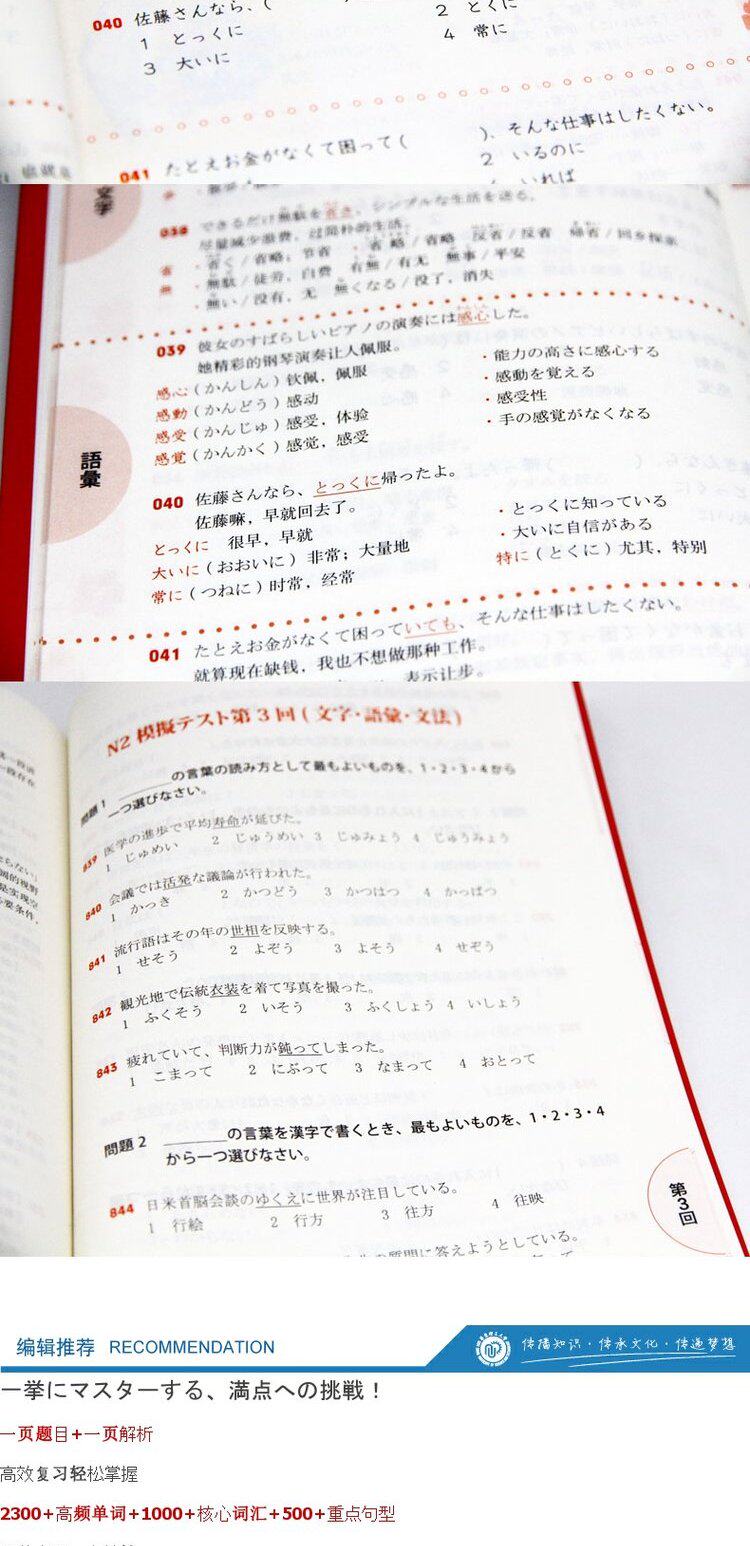 040 佐藤さんなら、(
1 とっくに
2 とくに
3 大いに
4 常に
041 たとえお金がなくて困って(    )、そんな仕事はしたくない。
2 いるのに
いれば
文字
038 できるだけ無駄を省き、シンプルな生活を送る。
尽量减少浪费，过简朴的生活。
省 ・省く / 省略；节省 ・省略 / 省略 反省 / 反省 帰省 / 回乡探亲
無 ・無駄 / 徒劳，白费 有無 / 有无 無事 / 平安
・無い / 没有，无 無くなる / 没了，消失
039 彼女のすばらしいピアノの演奏には感心した。
她精彩的钢琴演奏让人佩服。
感心（かんしん）钦佩，佩服 ・能力の高さに感心する
感動（かんどう）感动 ・感動を覚える
感受（かんじゅ）感受，体验 ・感受性
感覚（かんかく）感觉，感受 ・手の感覚がなくなる
語彙
040 佐藤さんなら、とっくに帰ったよ。
佐藤嘛，早就回去了。
とっくに 很早，早就 ・とっくに知っている
大いに（おおいに）非常；大量地 ・大いに自信がある
常に（つねに）时常，经常 特に（とくに）尤其，特别
041 たとえお金がなくて困っていても、そんな仕事はしたくない。
就算现在缺钱，我也不想做那种工作。
表示让步。
N2 模擬テスト第3回（文字・語彙・文法）
問題1 ______の言葉の読み方として最もよいものを、1・2・3・4から
一つ選びなさい。
839 医学の進歩で平均寿命が延びた。
1 じゅめい 2 じゅうめい 3 じゅみょう 4 じゅうみょう
840 会議では活発な議論が行われた。
1 かつき 2 かつどう 3 かつはつ 4 かっぱつ
841 流行語はその年の世相を反映する。
1 せそう 2 よぞう 3 よそう 4 せぞう
842 観光地で伝統衣装を着て写真を撮った。
1 ふくそう 2 いそう 3 ふくしょう 4 いしょう
843 疲れていて、判断力が鈍ってしまった。
1 こまって 2 にぶって 3 なまって 4 おとって
問題2 ______の言葉を漢字で書くとき、最もよいものを、1・2・3・4
から一つ選びなさい。
844 日米首脳会談のゆくえに世界が注目している。
1 行絵 2 行方 3 往方 4 往映
の質問に答えようとしている。
第3回
编辑推荐 RECOMMENDATION
传播知识·传承文化·传递梦想
一挙にマスターする、満点への挑戦！
一页题目+一页解析
高效复习轻松掌握
2300+高频单词+1000+核心词汇+500+重点句型